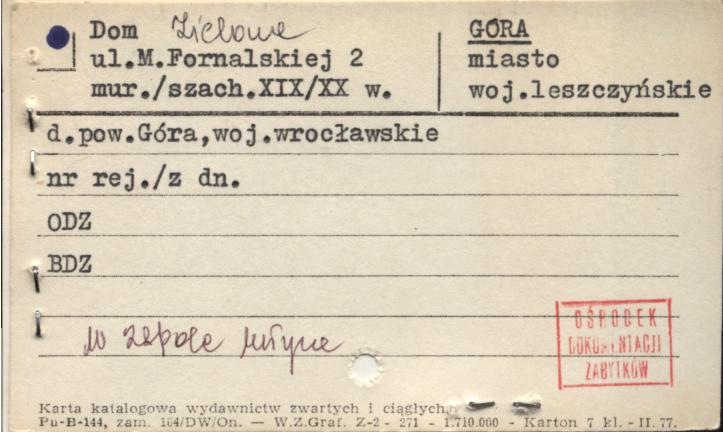 Dom Zielone
ul.M.Fornalskiej 2
mur./szach.XIX/XX w.
GÓRA
miasto
woj.leszczyńskie
d.pow.Góra,woj.wrocławskie
nr rej./z dn.
ODZ
BDZ
w zespole młyna
OŚRODEK
DOKUMENTACJI
ZABYTKÓW
Karta katalogowa wydawnictw zwartych i ciągłych.
Pu-B-144, zam. 164/DW/On. — W.Z.Graf. Z-2 - 271 - 1.710.000 - Karton 7 kl. - II. 77.